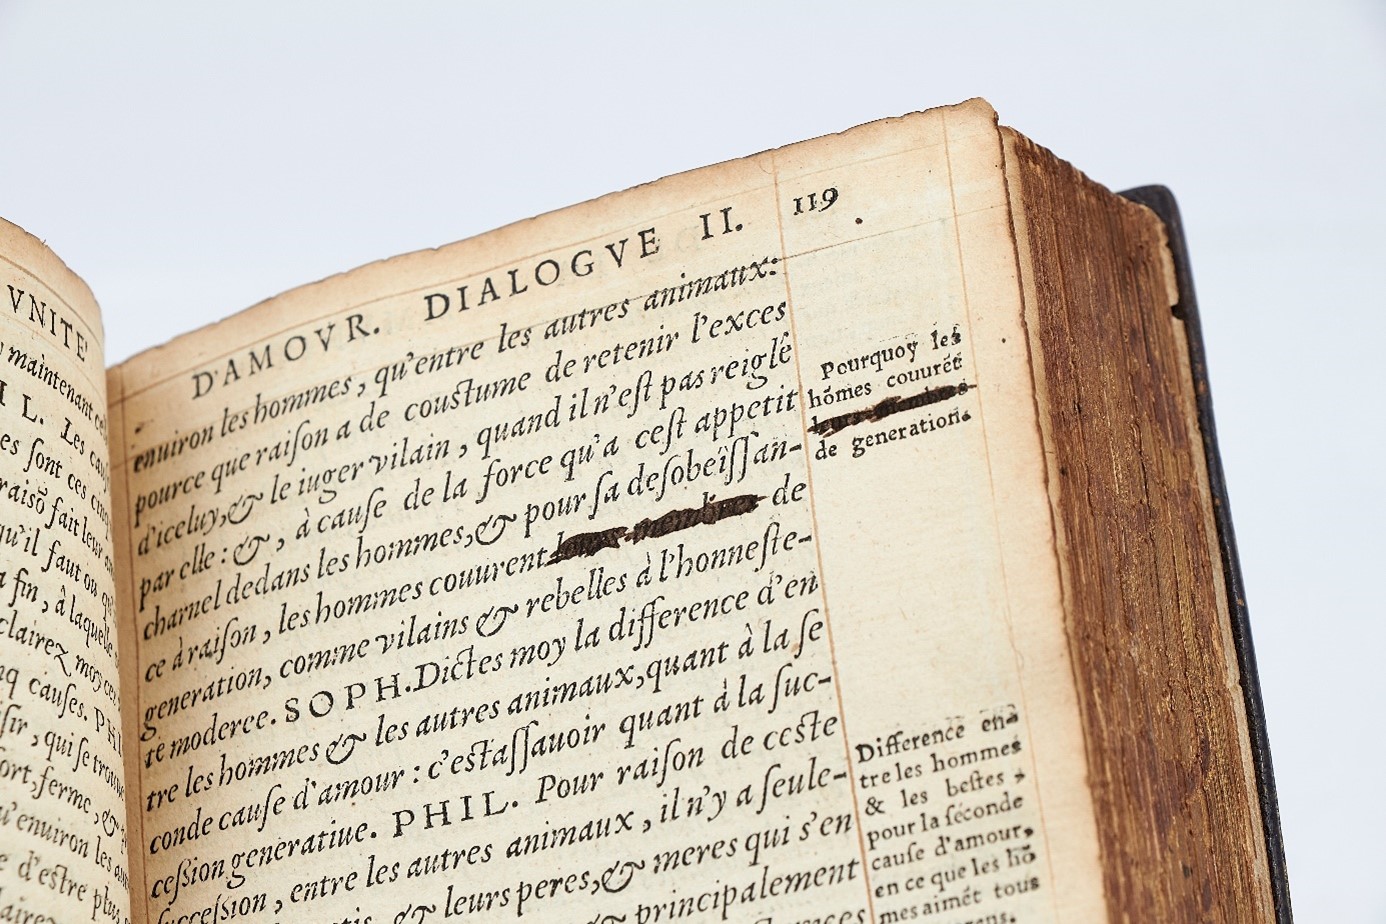 VNITE'
maintenant
H I L. Les
es sont ces cinq
raisõ fait leur
qu'il faut ou
fin, à laquelle
clairez moy
nq causes. PHI
sir, qui se
ort, ferme, &
qu'enuiron les
e d'estre plus
D'AMOVR. DIALOGVE II. 119
enuiron les hommes, qu'entre les autres animaux:
pource que raison a de coustume de retenir l'exces
d'iceluy, & le iuger vilain, quand il n'est pas reiglé
par elle: &, à cause de la force qu'a cest appetit
charnel dedans les hommes, & pour sa desobeïssan-
ce à raison, les hommes couurent leurs membres de
generation, comme vilains & rebelles à l'honneste-
té moderee. SOPH. Dictes moy la difference d'en
tre les hommes & les autres animaux, quant à la se
conde cause d'amour: c'est assauoir quant à la suc-
cession generatiue. PHIL. Pour raison de ceste
succession, entre les autres animaux, il n'y a seule-
& leurs peres, & meres qui s'en
& principalement
Pourquoy les
hõmes couurẽt
leurs membres
de generation.
Difference en-
tre les hommes
& les bestes
pour la seconde
cause d'amour,
en ce que les hõ
mes aimẽt tous